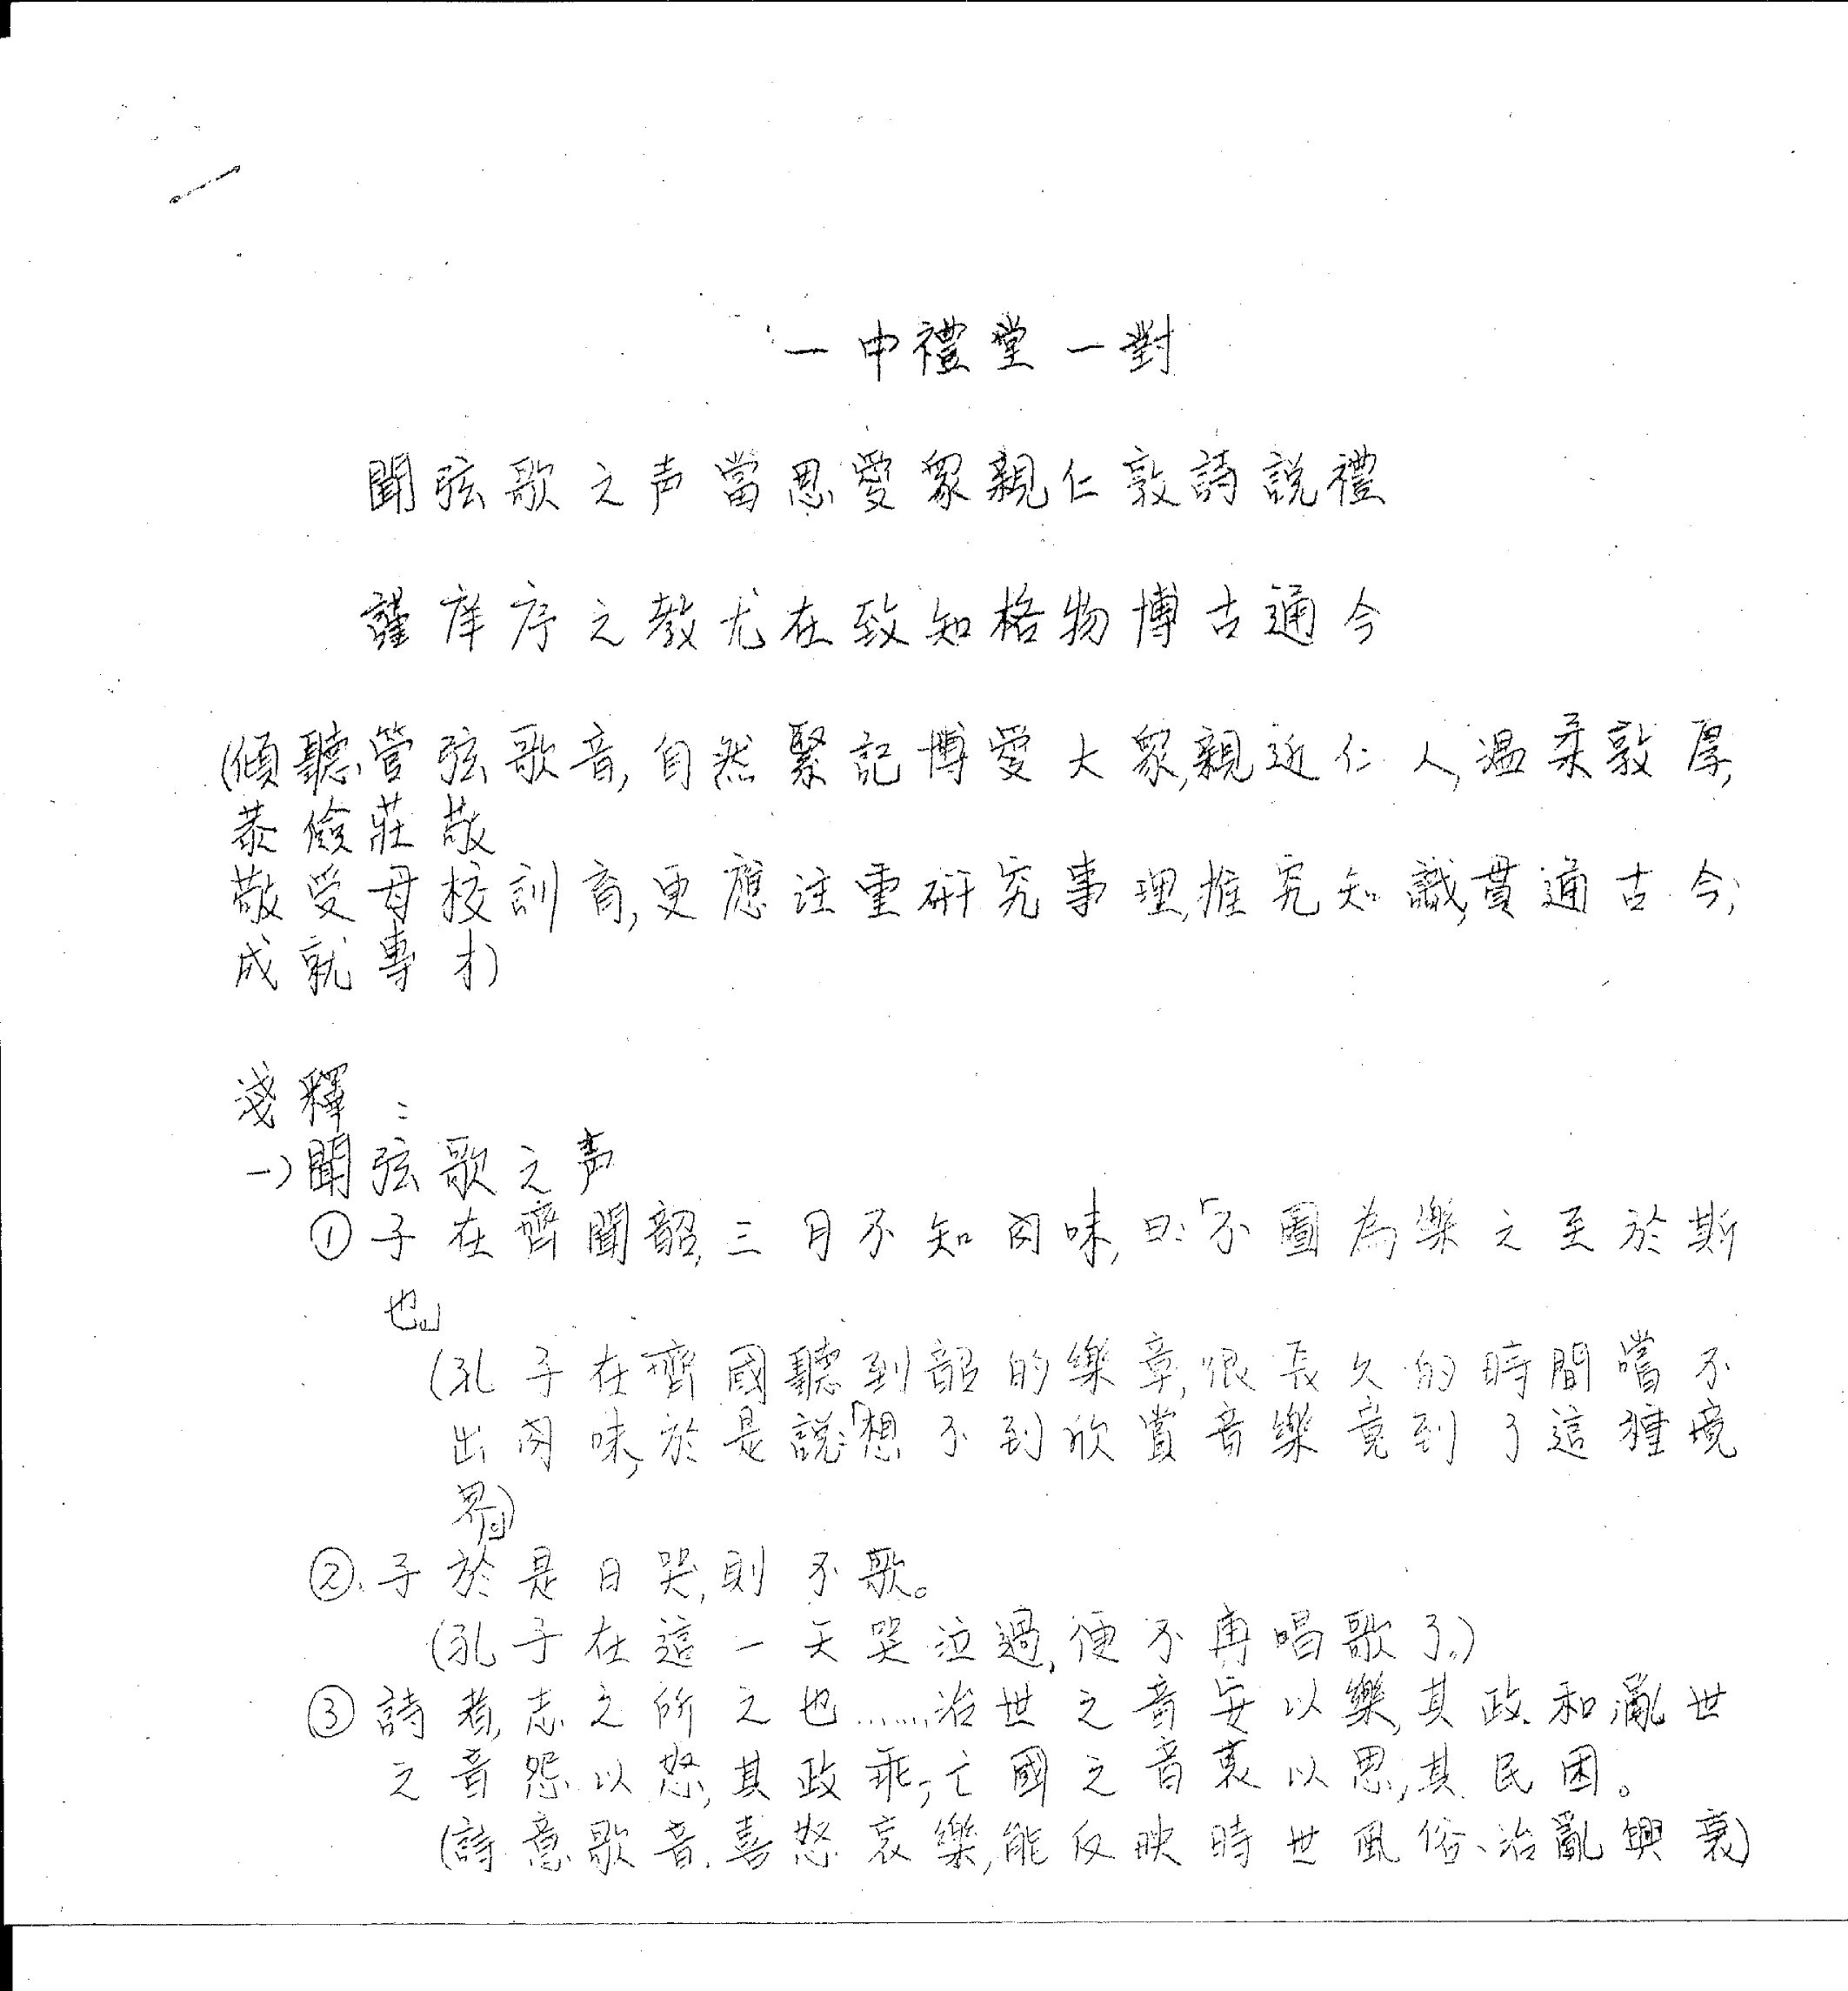 一中禮堂一對
聞弦歌之声當思愛眾親仁敦詩説禮
謹庠序之教尤在致知格物博古通今
(傾聽管弦歌音,自然緊記博愛大眾,親近仁人,溫柔敦厚,
恭儉莊敬
敬受母校訓育,更應注重研究事理,推究知識,貫通古今,
成就專才)
淺釋:
一)聞弦歌之声
①子在齊聞韶,三月不知肉味,曰:「不圖為樂之至於斯
也。」
(孔子在齊國聽到韶的樂章,很長久的時間嚐不
出肉味,於是說:「想不到欣賞音樂竟到了這種境
界。」)
②.子於是日哭,則不歌。
(孔子在這一天哭泣過,便不再唱歌了。)
③詩者,志之所之也……治世之音安以樂,其政和亂世
之音怨以怒,其政乖;亡國之音哀以思,其民困。
(詩意歌音.喜怒哀樂,能反映時世風俗、治亂興衰)